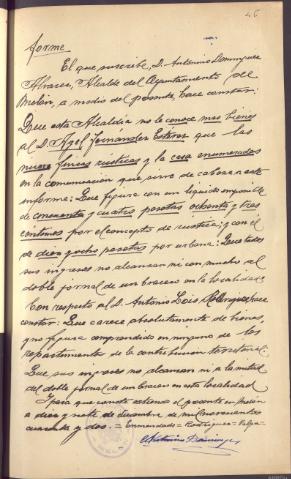 46
forme
El que suscribe, D. Antonino Dominguez
Alvarez, Alcalde del Ayuntamiento de
Melón, a medio del presente, hace constar:
Que esta Alcaldia no le conoce mas bienes
al D. Angel Fernández Esteros que las
nueve fincas rusticas y la casa enumeradas
en la comunicación que sirve de cabeza a este
informe; Que figura con un liquido imponible
de cincuenta y cuatro pesetas ochenta y tres
centimos por el concepto de rustica; y con el
de diez y ocho pesetas por urbana; Que todos
sus ingresos no alcanzan ni con mucho al
doble jornal de un bracero en la localidad.
Con respecto al D. Antonio Lois hace
constar: Que carece absolutamente de bienes,
y no figura comprendido en ninguno de los
repartimientos de la contribucion territorial.
Que sus ingresos no alcanzan ni a la mitad
del doble jornal de un bracero en esta localidad
Y para que conste extiendo el presente en Melón
a diez y siete de diciembre de mil novecientos
cuarenta y dos. = Enmendado = Rodriguez = Valga =
Antonino Dominguez